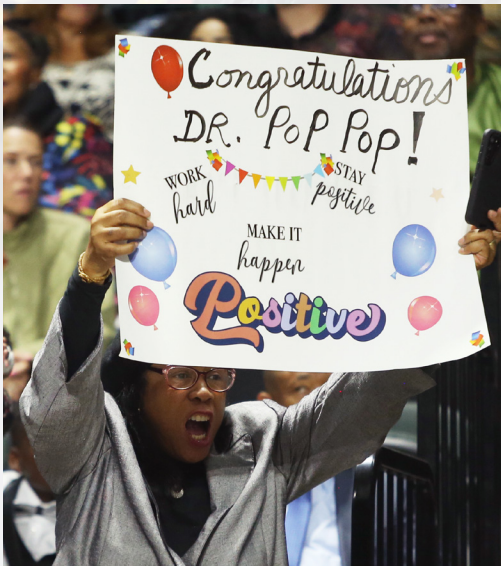 Congratulations
DR. POP POP!
WORK hard
STAY positive
MAKE IT
happen
Positive